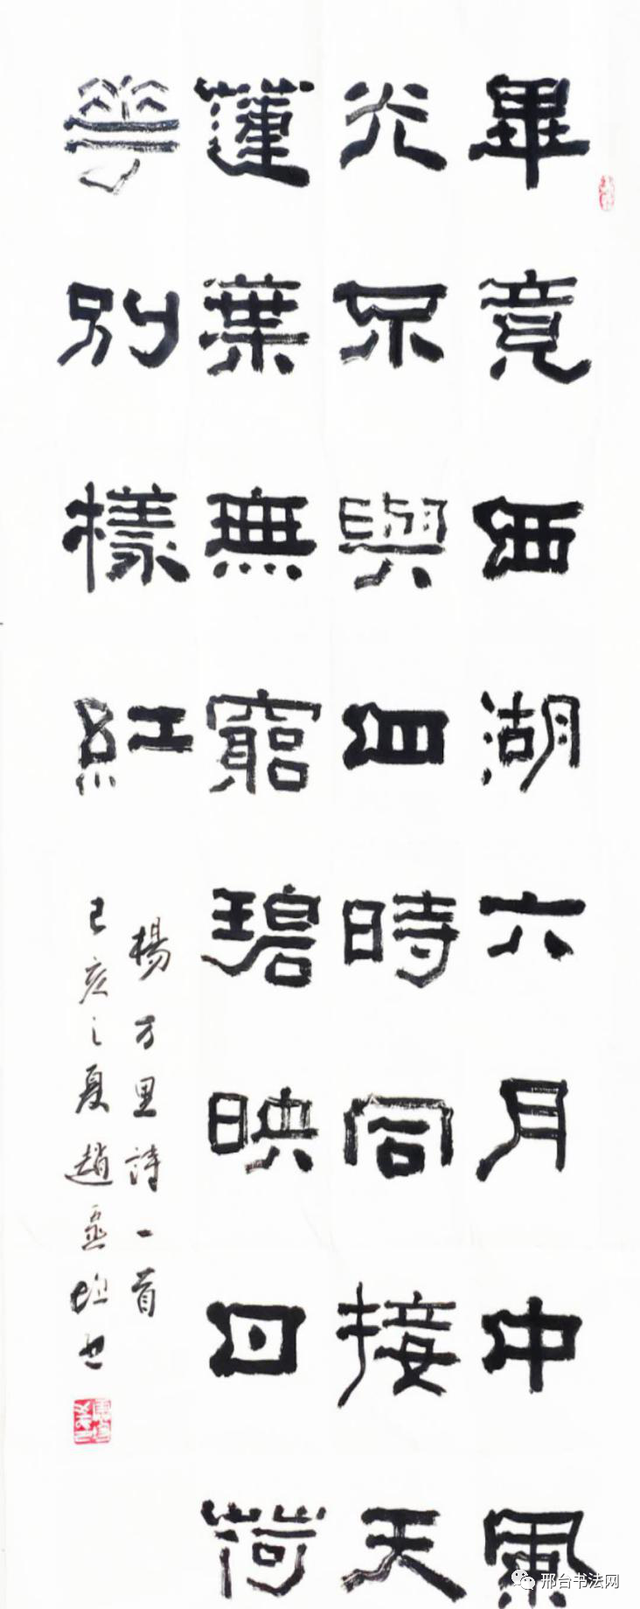 畢竟西湖六月中風
光不與四時同接天
蓮葉無窮碧映日荷
華別樣紅
楊万里詩一首
己亥之夏趙書
邢台书法网